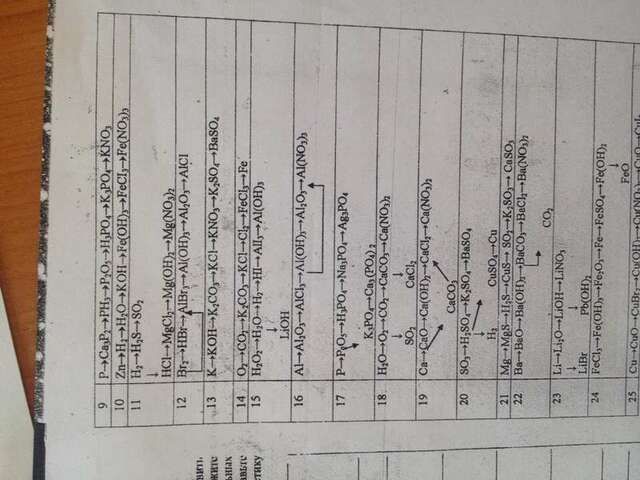 9 P→Ca₃P₂→PH₃→P₂O₅→H₃PO₄→K₃PO₄→KNO₃
10 Zn→H₂→H₂O→KOH→Fe(OH)₃→FeCl₃→Fe(NO₃)₃
11 H₂→H₂S→SO₂
↓
HCl→MgCl₂→Mg(OH)₂→Mg(NO₃)₂
12 Br₂→HBr→AlBr₃→Al(OH)₃→Al₂O₃→AlCl
13 K→KOH→K₂CO₃→KCl→KNO₃→K₂SO₄→BaSO₄
14 O₂→CO₂→K₂CO₃→KCl→Cl₂→FeCl₃→Fe
15 H₂O₂→H₂O→H₂→HI→AlI₃→Al(OH)₃
↓
LiOH
16 Al→Al₂O₃→AlCl₃→Al(OH)₃→Al₂O₃→Al(NO₃)₃
17 P→P₂O₅→H₃PO₄→Na₃PO₄→Ag₃PO₄
K₃PO₄→Ca₃(PO₄)₂
18 H₂O→O₂→CO₂→CaCO₃→Ca(NO₃)₂
↓ ↓
SO₂ CaCl₂
19 Ca→CaO→Ca(OH)₂→CaCl₂→Ca(NO₃)₂
CaCO₃
20 SO₃→H₂SO₄→K₂SO₄→BaSO₄
↓
H₂ CuSO₄→Cu
21 Mg→MgS→H₂S→CuS→SO₂→K₂SO₃→CaSO₃
22 Ba→BaO→Ba(OH)₂→BaCO₃→BaCl₂→Ba(NO₃)₂
CO₂
23 Li→Li₂O→LiOH→LiNO₃
↓ ↓
LiBr Pb(OH)₂
24 FeCl₃→Fe(OH)₃→Fe₂O₃→Fe→FeSO₄→Fe(OH)₂
↓
FeO
25 Cu→CaO→